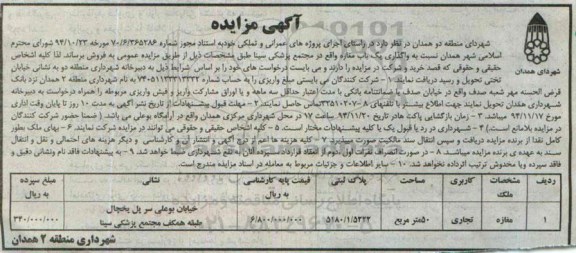 آگهی مزایده
شهرداری همدان
شهرداری منطقه دو همدان در نظر دارد در راستای اجرای پروژه های عمرانی و تملکی خود به استناد مجوز شماره ۷۰/۶/۳۶۵۲۸۶ مورخه ۹۴/۱۰/۲۳ شورای محترم
اسلامی شهر همدان نسبت به واگذاری یک باب مغازه واقع در مجتمع پزشکی سینا طبق مشخصات ذیل از طریق مزایده عمومی به فروش برساند. لذا کلیه اشخاص
حقیقی و حقوقی که قصد خرید و شرکت در مزایده را دارند می بایست درخواست های خود را بر اساس شرایط ذیل به دبیرخانه شهرداری منطقه دو به نشانی خیابان
تختی تحویل و رسید دریافت نمایند. ۱- شرکت کنندگان می بایستی مبلغ واریزی را به حساب شماره به نام شهرداری منطقه ۲ همدان نزد بانک
قرض الحسنه مهر شعبه صدف واقع در خیابان صدف یا ضمانتنامه بانکی با مدت اعتبار حداقل سه ماهه و یا اوراق مشارکت واریز و فیش واریزی مربوطه را همراه درخواست به دبیرخانه
شهرداری همدان تحویل نمایند جهت اطلاع بیشتر با تلفنهای تماس حاصل نمایند. ۲- مهلت قبول پیشنهادات از تاریخ نشر آگهی به مدت ۱۰ روز تا پایان وقت اداری
مورخ ۹۴/۱۱/۱۷ میباشد. ۳- زمان بازگشایی پاکت ها در تاریخ ۹۴/۱۱/۲۰ ساعت ۱۷ در محل شهرداری مرکزی همدان واقع در آرامگاه بوعلی می باشد. (ضمنا حضور شرکت کنندگان
در مزایده بلامانع است). ۴- شهرداری در رد یا قبول یک یا کلیه پیشنهادات مختار است. ۵- کلیه اشخاص حقیقی و حقوقی می توانند در مزایده شرکت نمایند. ۶- بهای ملک بطور
کامل نقدا از برنده مزایده دریافت و سپس انتقال سند مالکیت صورت میپذیرد. ۷- کلیه هزینه ها اعم از درج آگهی و انتشار آن و کارشناسی و دیگر هزینه های احتمالی و نقل و انتقال
سند به عهده ی برنده مزایده میباشد. ۸- در صورت انصراف نفرات اول تا سوم از انعقاد قرارداد، سپرده آنان به نفع شهرداری ضبط خواهد شد. ۹- به پیشنهادات فاقد نام ونشانی دقیق و
فاقد سپرده ویا مخدوش ترتیب اثر داده نخواهد شد. ۱۰- سایر اطلاعات و جزئیات مربوط به معامله در اسناد مزایده مندرج است.
ردیف مشخصات ملک کاربری مساحت پلاک ثبتی قیمت پایه کارشناسی به ریال نشانی مبلغ سپرده به ریال
۱ مغازه تجاری ۵۰متر مربع ۵۱۸۰/۱/۵۳۲۲ ۶/۸۰۰/۰۰۰/۰۰۰ خیابان بوعلی سر پل یخچال طبقه همکف مجتمع پزشکی سینا ۳۴۰/۰۰۰/۰۰۰
شهرداری منطقه ۲ همدان